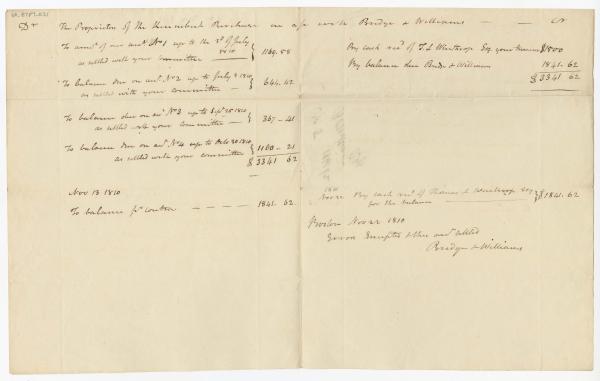 Dr The Proprietors of the Kennebeck Purchase in a/c with Bridge & Williams Cr
To amot. of our acct. No 1 up to the 3d of July 1810
as settled with your committee 1169.58
To balance due on acct No 2 up to July 1810
as settled with your committee 644.42
To balance due on acct No 3 up to Sept 25 1810
as settled with your committee 367-41
To balance due on acct No 4 up to Octo 30 1810
as settled with your committee 1160-21
$3341 62
Nov 13 1810
To balance pr contra 1841.62
By cash recd of T. L Winthrop Esq your $1500
By balance due Bridge & Williams 1841.62
$3341 62
1810
By cash recd of Thomas L Winthrop Esq
for the balance $1841.62
Boston Nov 22 1810
Errors Excepted & the acct settled
Bridge & Williams